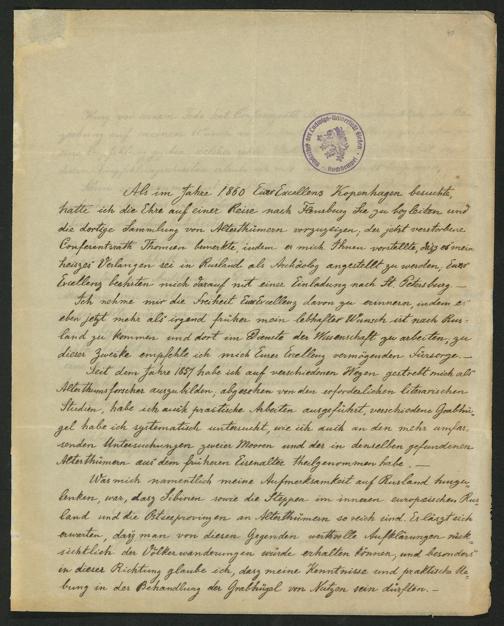 Als im Jahre 1860 Euer Excellens Kopenhagen besuchte,
hatte ich die Ehre auf einer Reise nach Flensburg Sie zu begleiten und
die dortige Sammlung von Alterthümern vorzuzeigen, der jetzt verstorbene
Conferentsrath Thomsen bemerkte indem er mich Ihnen vorstellte, dasz es mein
heiszes Verlangen sei in Rusland als Archäolog angestellt zu werden, Euer
Excellenz beehrten mich darauf mit einer Einladung nach St. Petersburg. —
Ich nehme mir die Freiheit Euer Excellenz davon zu erinnern, indem es
eben jetzt mehr als irgend früher mein lebhafter Wunsch ist nach Rus-
land zu kommen und dort im Dienste der Wissenschaft zu arbeiten, zu
dieser Zwecke empfehle ich mich Eurer Excellenz vermögenden Fürsorge. —
Seit dem Jahre 1857 habe ich auf verschiedenen Wegen gestrebt mich als
Alterthumsforscher auszubilden, abgesehen von den erforderlichen literarischen
Studien, habe ich auch practische Arbeiten ausgeführt, verschiedene Grabhü-
gel habe ich systematisch untersucht, wie ich auch an den mehr umfas-
senden Untersuchungen zweier Mooren und der in denselben gefundenen
Alterthümern aus dem früheren Eisenalter theilgenommen habe. —
Was mich namentlich meine Aufmerksamkeit auf Rusland hinzu-
lenken, war, dasz Sibirien sowie die Steppen im inneren europæischen Rus-
land und die Ostseeprovinzen an Alterthümern so reich sind. Es läszt sich
erwarten, dasz man von diesen Gegenden wertvolle Aufklärungen rück-
sichtlich der Völkerwanderungen würde erhalten können, und besonders
in dieser Richtung glaube ich, dasz meine Kenntnisse und praktische Ue-
bung in der Behandlung der Grabhügel von Nutzen sein dürften. —